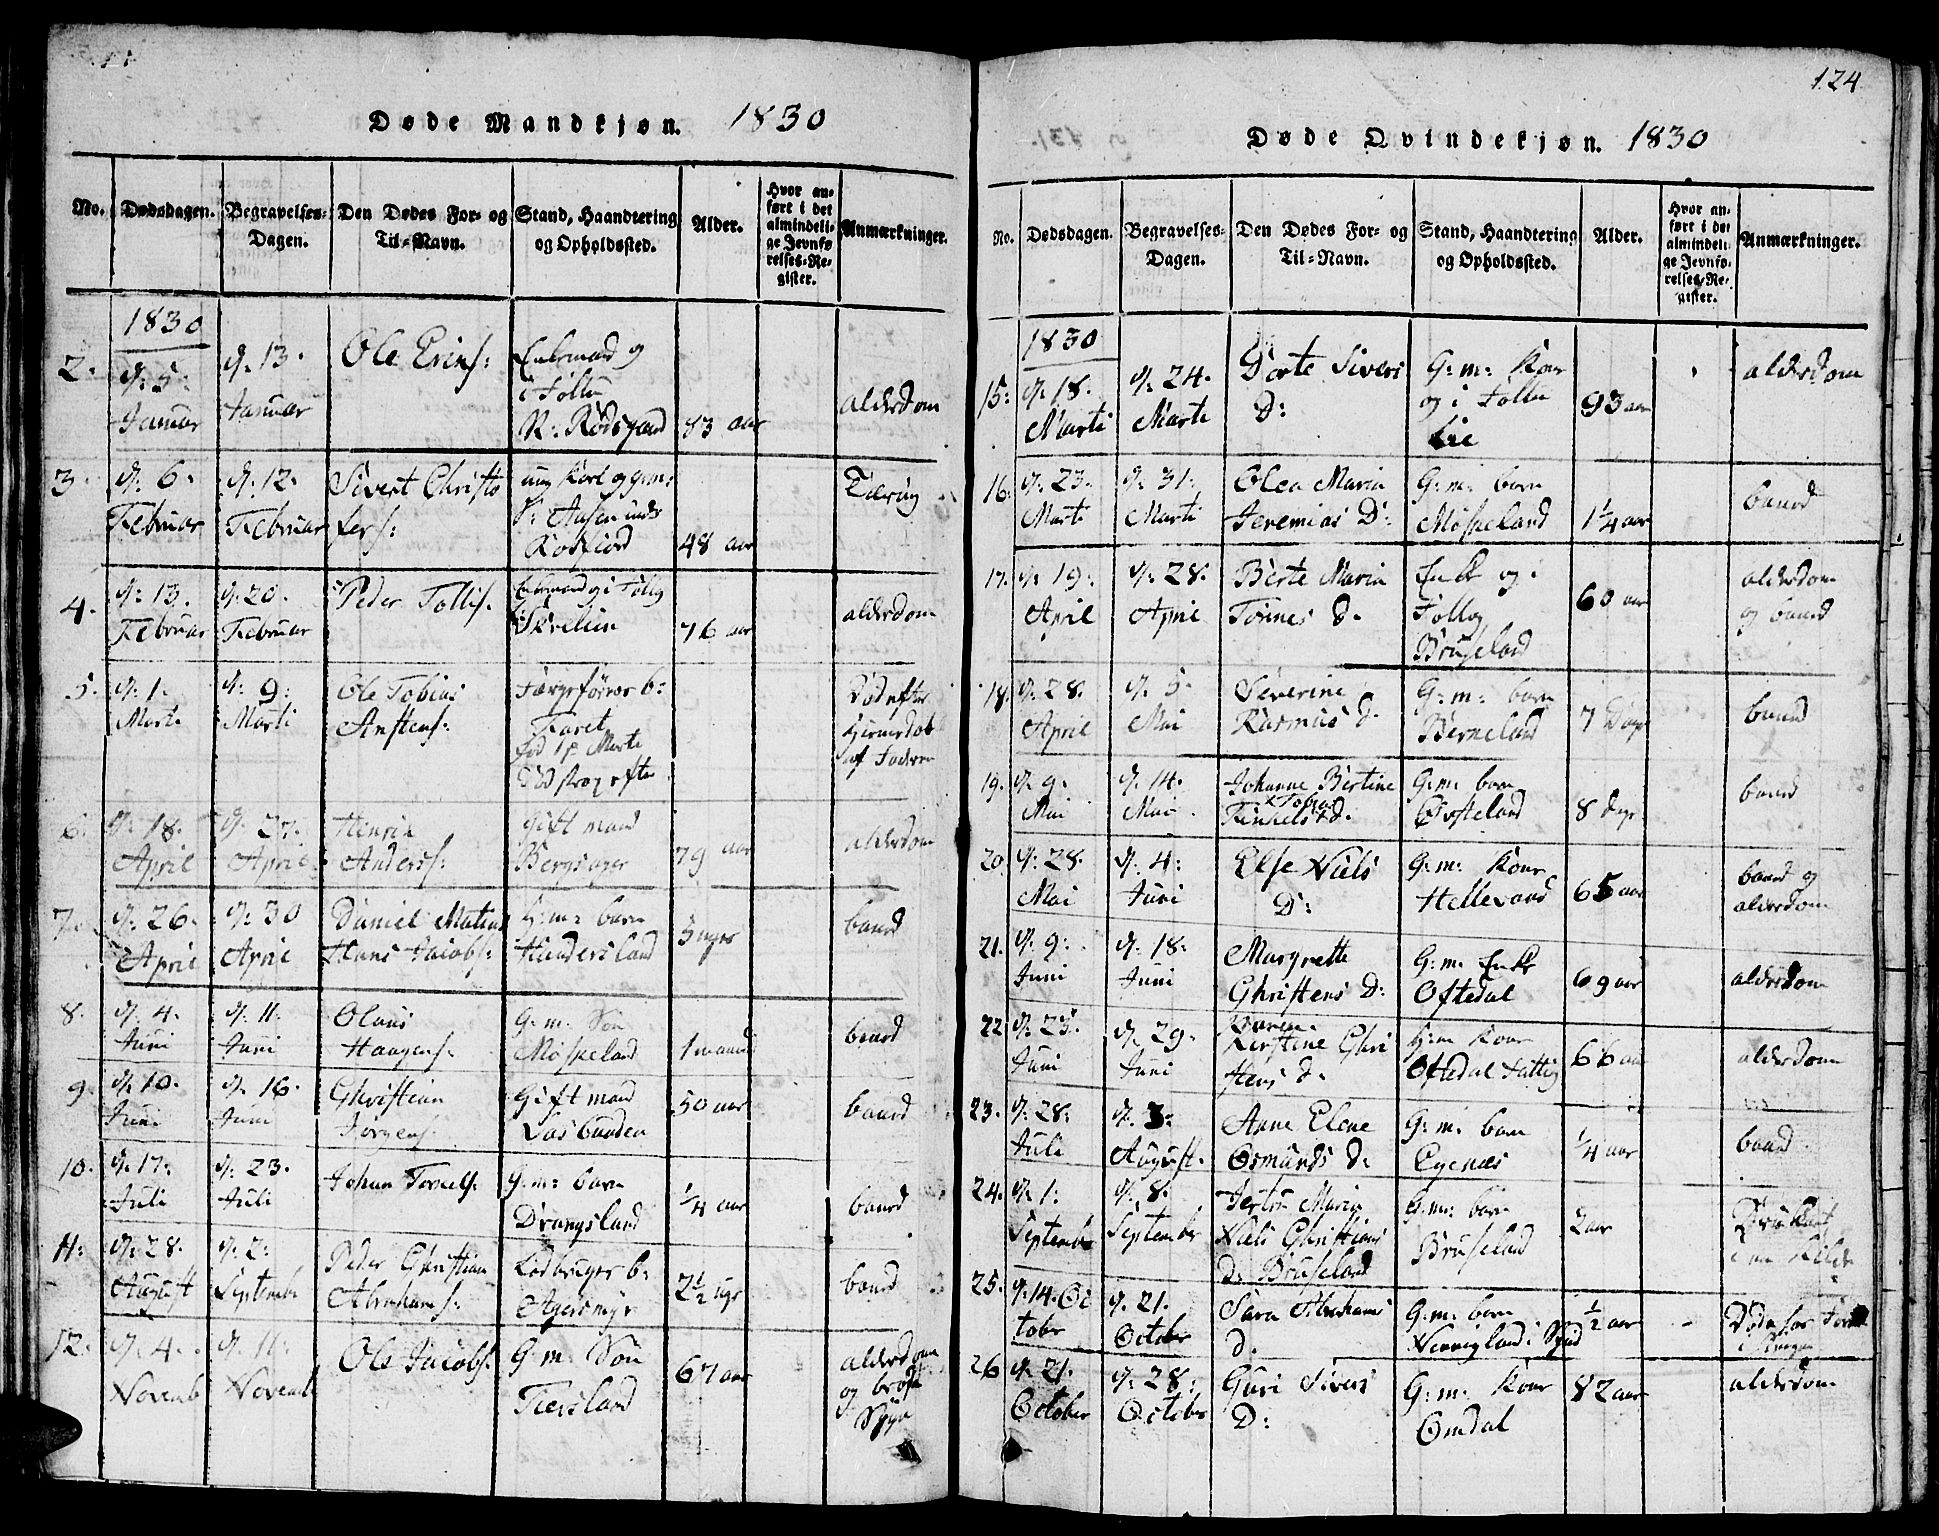 124
Døde Mandkjøn. 1830
No. Dødsdagen. Begravelses-Dagen. Den Dødes For- og Til-Navn. Stand, Haandtering og Opholdssted. Alder. Hvor anført i det almindelige Jevnførelses-Register. Anmærkninger.
1830
2. d: 5: Januar
d. 13. Januar
Ole Erics:
Enkemand og
i
N:
83 aar
alderdom
3. d. 6. Februar
d. 12. Februar
Sivert Christofers:
ung Karl og
48 aar
Tæring
4. d: 13. Februar
d. 20. Februar
Peder Tollis.
76 aar
alderdom
5. d: 1. Marti
d. 9: Marti
Ole Tobias
b:
Faret
Marti
efter
af
6. d. 18. April
d. 27. April
Henrik Anders:
Gift mand
Bergsager
79 aar
alderdom
7. d: 26. April
d: 30 April
Daniel Matius
Hans Jacobs:
barn
5 uger
baard
8. d. 4. Juni
d. 11: Juni
Olaus
Haagens:
G. m: Søn
Møskeland
1 maaned
baard
9. d: 10. Juni
d. 16. Juni
Christian
Jørgens:
Gift mand
50 aar
baard
10. d. 17: Juli
d: 23. Juli
Johan
G: m: barn
Drangsland
1/4 aar
baard
11: d: 28. August
d: 2: Septemb
Peder Christian
Abrahams:
b:
Agersmyr
2 1/2 ugr
baard
12. d. 4. Novemb
d. 11: Novemb
Ole Jacobs:
G: m: Søn
67 aar
alderdom
og bryst
Syge
Døde Qvindekjøn. 1830
No. Dødsdagen. Begravelses-Dagen. Den Dødes For- og Til-Navn. Stand, Haandtering og Opholdssted. Alder. Hvor anført i det almindelige Jevnførelses-Register. Anmærkninger.
1830
15: d: 18. Marti
d: 24. Marti
Dorte Sivers
D:
G: m: Kone
og i
Lie
93 aar
alderdom
16: d: 23. Marti
d: 31: Marti
Olea Maria
Jeremias D:
G: m: barn
Møskeland
1 1/4 aar
baard
17. d: 19: April
d: 28. April
Berte Maria
D.
Enke og
Bruseland
60 aar
alderdom
og baard
18. d: 28. April
d: 5: Mai
Severine
Rasmus d.
G: m: barn
Berneland
7 Dage
baard
19. d: 9: Mai
d. 14. Mai
Johanne Bertine
Tobias
d.
G: m: barn
Øvsteland
8 dage
baard
20 d: 28. Mai
d. 4: Juni
Else Niels
D:
G: m: Kone
Hellevand
65 aar
baard og
alderdom
21. d. 9: Juni
d. 18: Juni
Margrette
Christens D:
G: m. Enke
Oftedal
69 aar
alderdom
22 d: 25 Juni
d. 29. Juni
Karen
Kirstine Christens d.
Kone
Oftedal Fattig
66 aar
alderdom
23. d. 28: Juli
d. 3: August.
Anne Elene
Osmunds d.
G: m: barn
Egenæs
1/4 aar
baard
24. d: 1: September
d: 8. September
Maria
Niels Christians
d: Bruseland
G: m: barn
Bruseland
2 aar
25. d: 14. October
d. 21. October
Sara Abrahams
d.
G: m: barn
1/2 aar
26 d: 21. October
d: 28: October
Guri Sivers
D:
G: m: Kone
Omdal
82 aar
alderdom